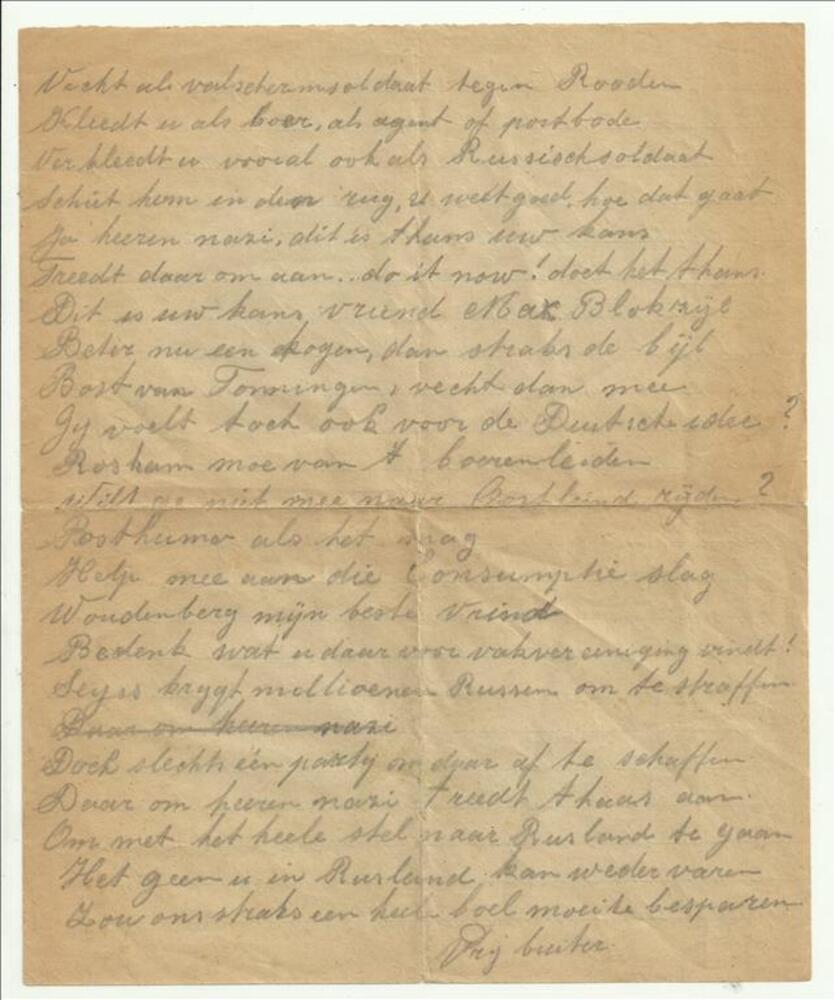 Vecht als valschermsoldaat tegen Rooden
Kleedt u als boer, als agent of postbode
Verkleedt u vooral ook als Russisch soldaat
Schiet hem in den rug, u weet goed, hoe dat gaat
Ja heeren nazi, dit is thans uw kans
Treedt daar om aan.. do it now! doet het thans.
Dit is uw kans, vriend Max Blokzijl
Beter nu een kogen, dan straks de bijl
Rost van Tonningen, vecht dan mee
Gij voelt toch ook voor de Duitsche idee?
Roskam moe van 't boerenleiden
Wilt ge niet mee naar Oostland rijden?
Posthuma als het mag
Help mee aan die Consumptie slag
Woudenberg mijn beste vrind
Bedenk wat u daar voor vakvereeniging vindt!
Seyss krygt millioenen Russen om te straffen
Daar om heeren nazi
Doch slechts één partij om daar af te schaffen
Daar om heeren nazi treedt thans aan.
Om met het heele stel naar Rusland te gaan
Het geen u in Rusland kan weder varen
Zou ons straks een heele boel moeite besparen
Vrij buiter.